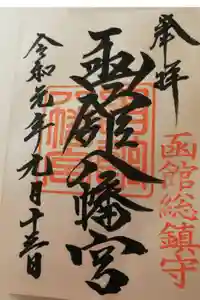 奉拝
函館総鎮守
函館八幡宮
令和元年九月十三日